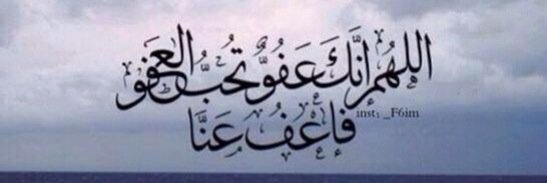 اللهم إنَّكَ عَفُوٌّ تُحبُّ العَفوَ
فاعْفُ عَنَّا
inst: _F6im